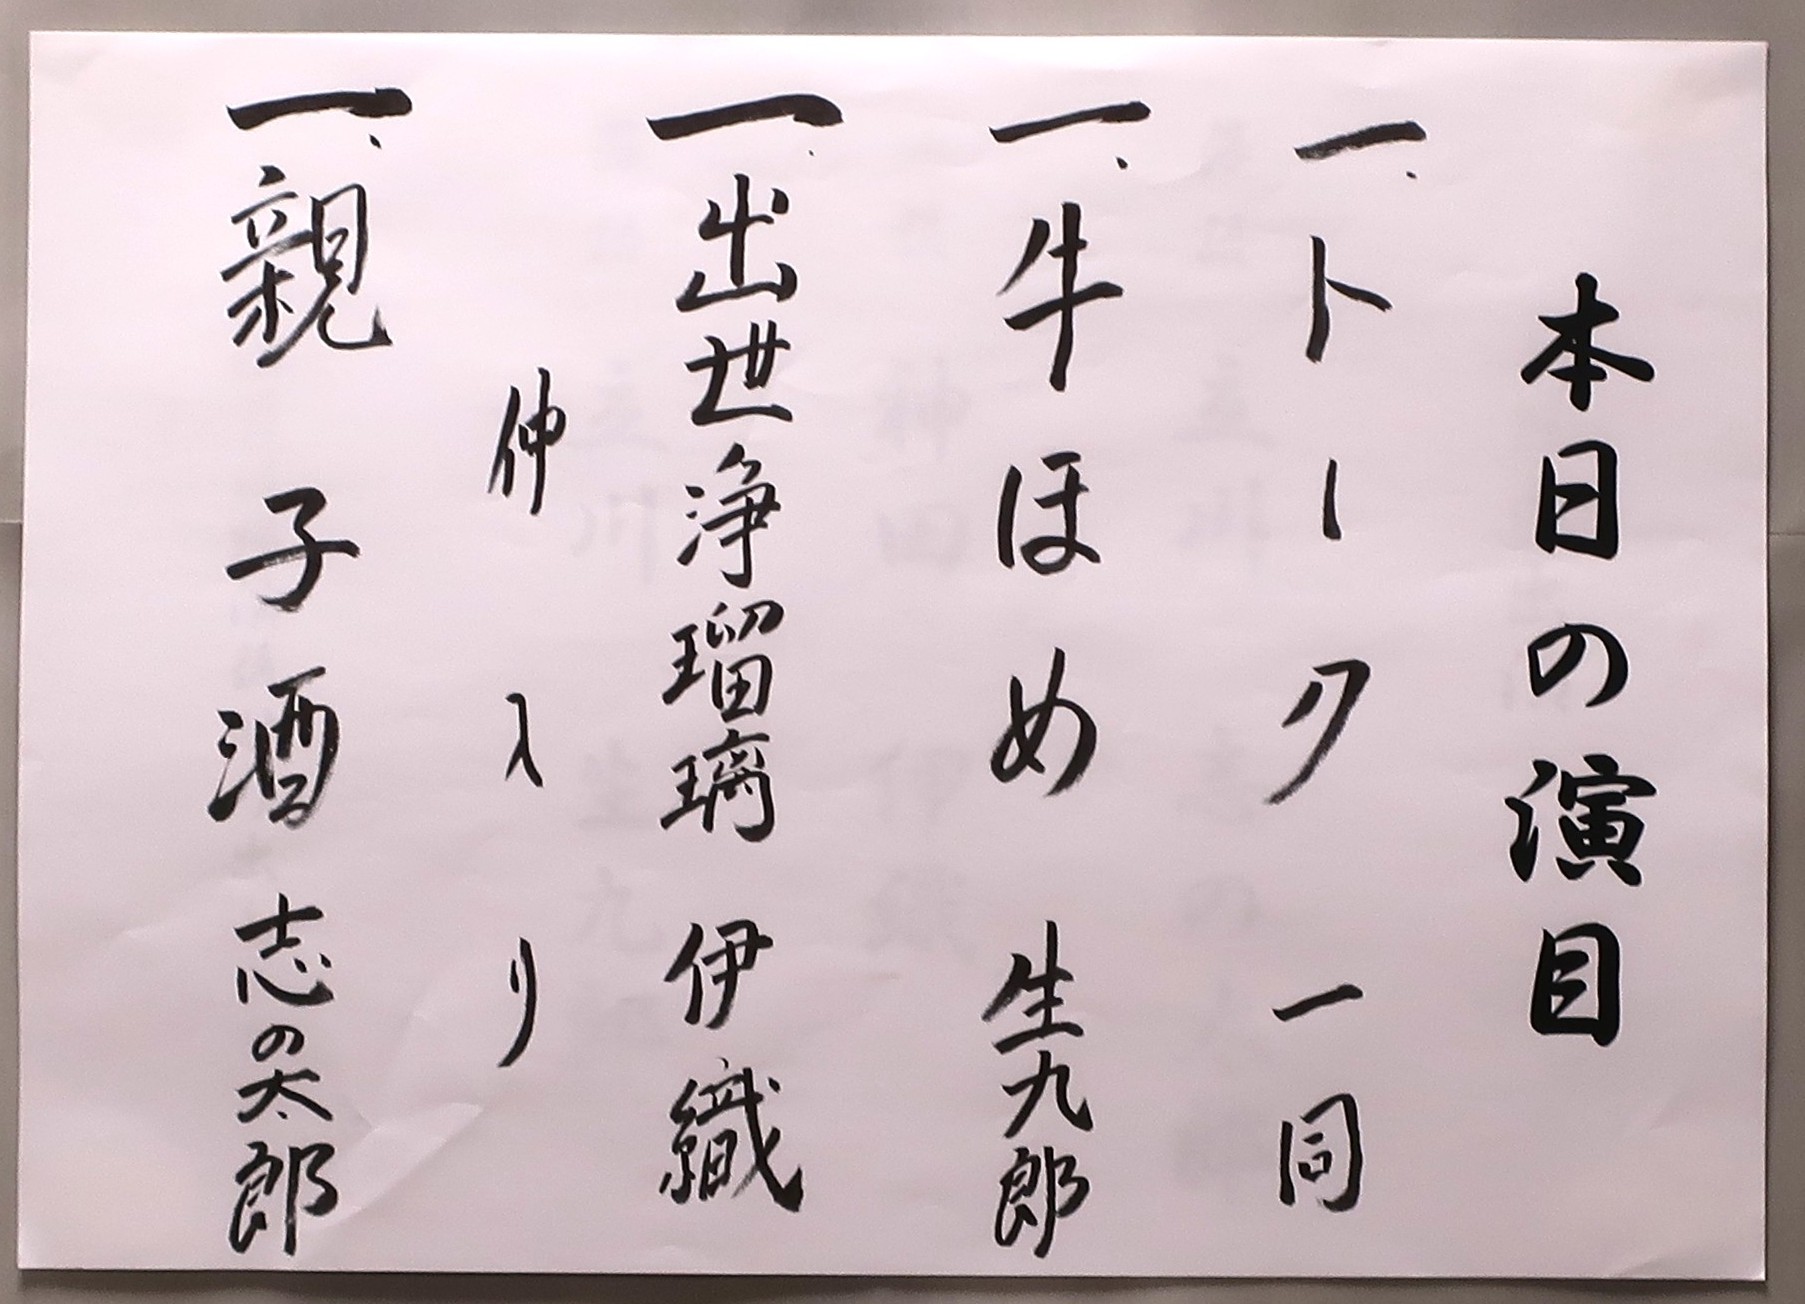 本日の演目
一、トーク 一同
一、牛ほめ 生九郎
一、出世浄瑠璃 伊織
仲入り
一、親子酒 志の太郎